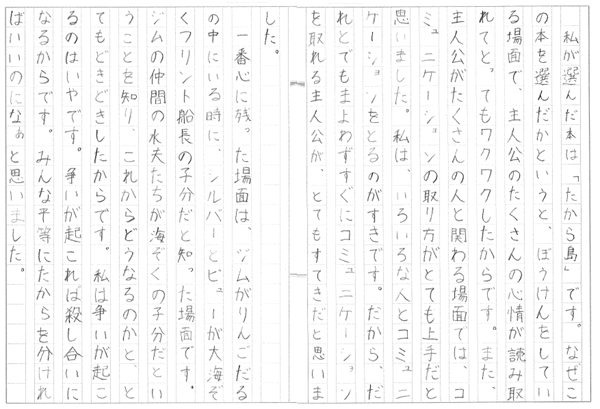 私が選んだ本は「たから島」です。なぜこ
の本を選んだかというと、ぼうけんをしてい
る場面で、主人公のたくさんの心情が読み取
れてとってもワクワクしたからです。また、
主人公がたくさんの人と関わる場面では、コ
ミュニケーションの取り方がとても上手だと
思いました。私は、いろいろな人とコミュニ
ケーションをとるのがすきです。だから、だ
れとでもまよわずすぐにコミュニケーション
を取れる主人公が、とてもすてきだと思いま
した。
一番心に残った場面は、ジムがりんごだる
の中にいる時に、シルバーとビューが大海ぞ
くフリント船長の子分だと知った場面です。
ジムの仲間の水夫たちが海ぞくの子分だとい
うことを知り、これからどうなるのかと、と
てもどきどきしたからです。私は争いが起こ
るのはいやです。争いが起これば殺し合いに
なるからです。みんな平等にたからを分けれ
ばいいのになぁと思いました。